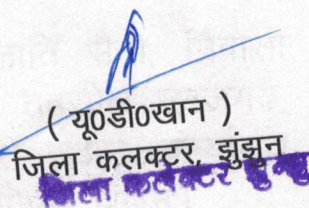 ( यू0डी0खान )
जिला कलक्टर, झुंझुन
जिला कलक्टर झुन्झु